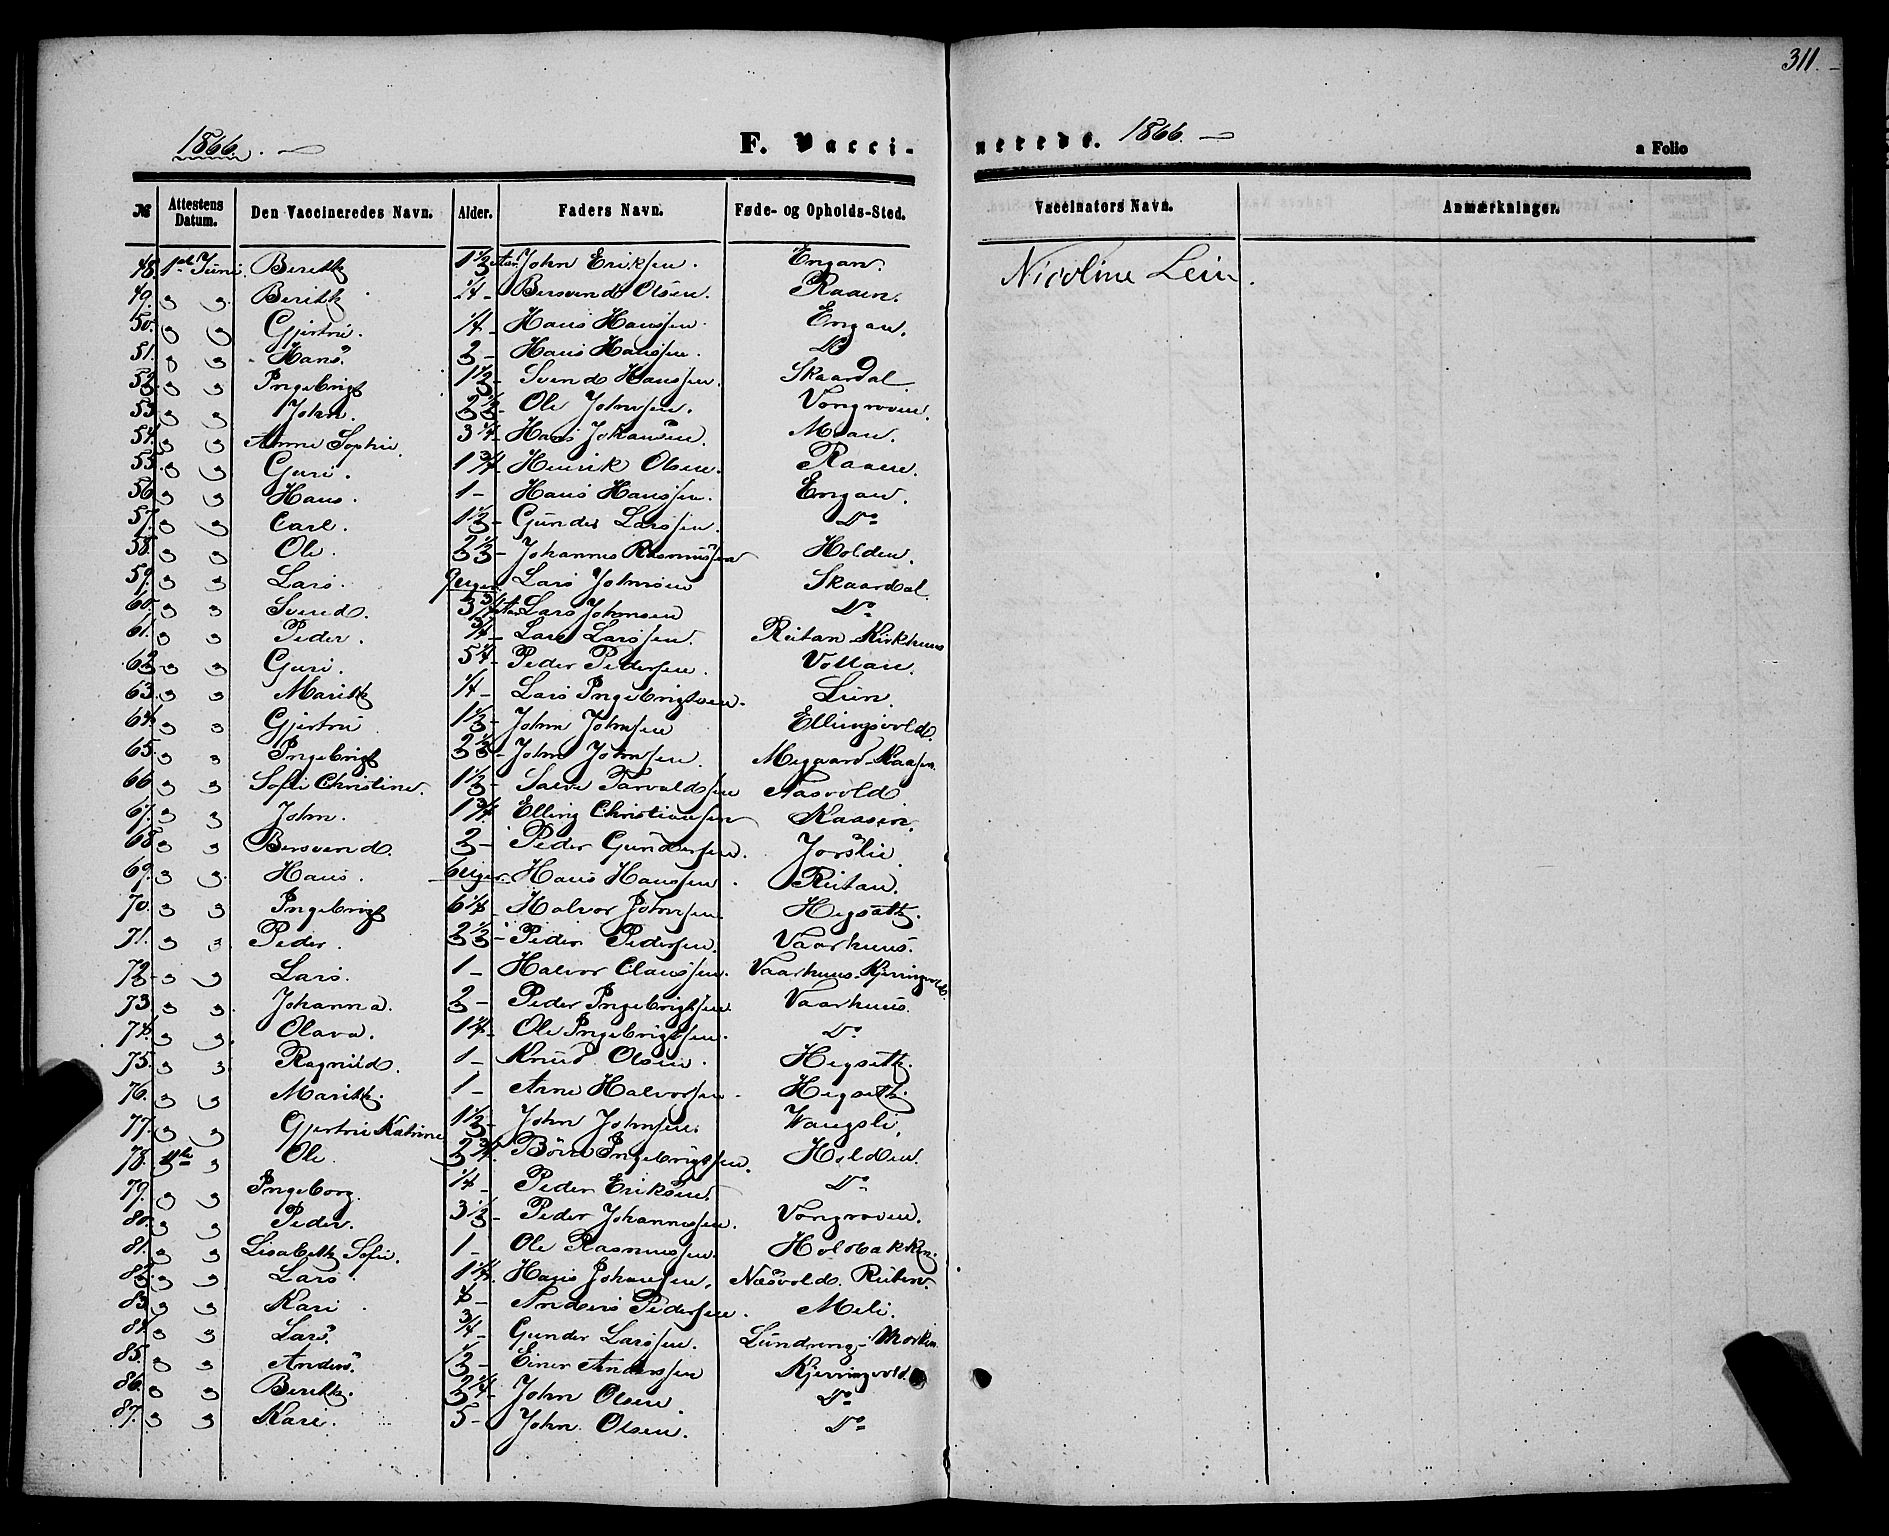 311.
1866.
F. Vacci-
nerede. 1866.
a Folio
№ Attestens Datum. Den Vaccineredes Navn. Alder. Faders Navn. Føde- og Opholds-Sted. Vaccinators Navn. Anmærkninger.
48. 1ste Juni. Berith 1½ Aar John Eriksen. Engan. Nicoline Lein.
49. " " Berith ¼ - Bersvend Olsen. Raaen.
50. " " Gjertru. ¼ - Hans Hanssen. Engan.
51. " " Hans. 2 - Hans Hanssen. Do
52. " " Ingebrigt 1½ - Svend Hanssen. Skaardal
53. " " John. 2½ - Ole Johnsen. Vongraven.
54. " " Anne Sophie. 3¼ - Hans Johansen. Moan.
55. " " Guri. 1¾ - Henrik Olsen. Raaen.
56. " " Hans. 1 - Hans Hanssen. Engan.
57. " " Carl. 1½ - Gunder Larssen. Do
58. " " Ole. 2½ - Johannes Rasmussen Holden.
59. " " Lars. Uger Lars Johnsen Skaardal.
60. " " Svend. 3¾ Aar Lars Johnsen Do
61. " " Peder. ¾ - Lars Larssen. Reitan Kirkhuus
62. " " Guri. 5¼ - Peder Pedersen. Vollan.
63. " " Marith ¼ - Lars Ingebrigtsen. Lien.
64. " " Gjertru 1½ - John Johnsen Ellingsvold.
65. " " Ingebrigt 2½ - John Johnsen. Megaard-Kaasen.
66. " " Sofie Christine. 1½ - Tarvaldsen Aasvold
67. " " John. 1¾ Elling Christiansen Kaasen.
68. " " Bersvend. 2 - Peder Gundersen. Jorslie.
69. " " Hans. 6 Uger. Hans Hanssen. Reitan.
70. " " Ingebrigt 6¼ - Halvor Johnsen. Hegseth.
71. " " Peder. 2½ - Peder Pedersen. Vaarhuus.
72. " " Lars. 1 - Halvor Claussen. Vaarhuus-Kjerringvold.
73. " " Johanna. 2 - Peder Ingebrigtsen. Vaarhuus.
74. " " Olava. 1¼ - Ole Ingebrigtsen. Do
75. " " Ragnild. 1 - Knud Olsen. Hegseth.
76. " " Marith. 1 - Arne Halvorsen. Hegseth.
77. " " Gjertru Katrine 1½ - John Johnsen. Vangsli.
78. " Ole. 2¾. Ingebrigtsen. Holden.
79. " " Ingeborg. ¼ - Peder Eriksen. Do
80. " " Peder. 3½ - Peder Johannessen. Vongraven.
81. " " Lisabeth Sofie. 1 - Ole Rasmussen. Holbakken.
82. " " Lars. 1¼. Hans Johnsen. Næsvold. Reitan.
83. " " Kari - Anders Pedersen. Meli.
84. " " Lars. ¾ - Gunder Larssen. Morken.
85. " " Anders. ½ - Einer Anderssen Kjerringvold.
86. " " Berith. 2¼ - John Olsen. Do
87. " " Kari. 5 - John Olsen. Do